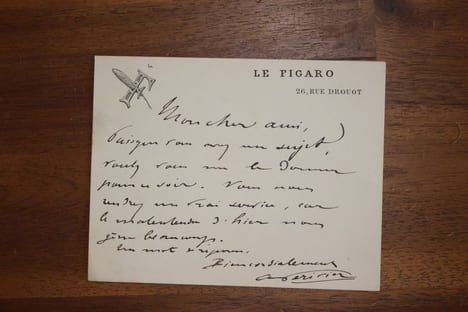 LE FIGARO
26, RUE DROUOT
Mon cher ami,
Puisque vous avez un sujet,
voulez vous me le donner
pour ce soir. Vous nous
rendrez un vrai service, car
le malentendu d'hier nous
gêne beaucoup.
Un mot réponse.
Bien cordialement
A Périvier